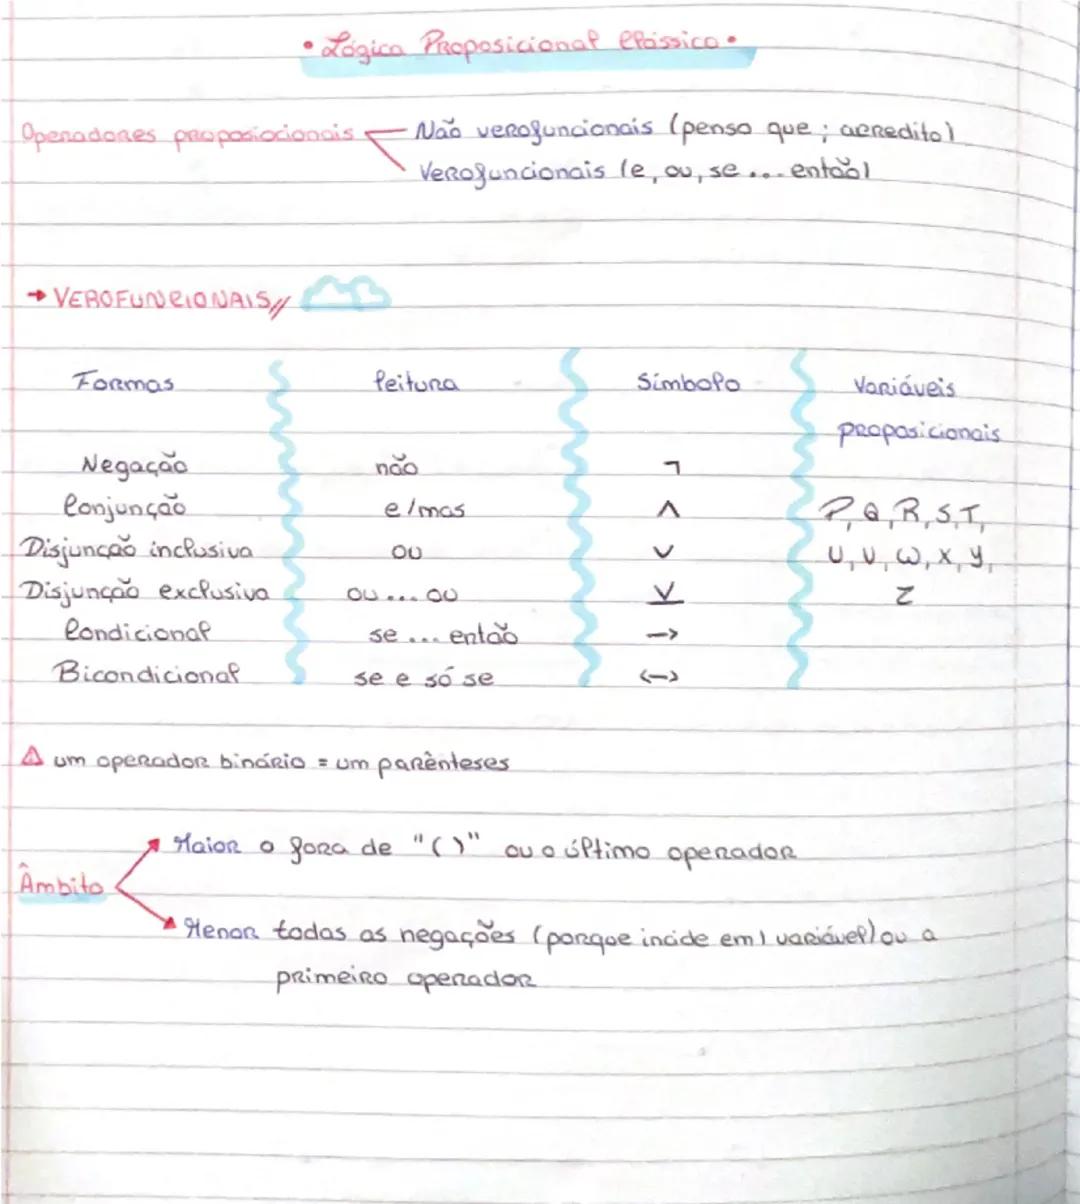 • Lógica Proposicional Clássica •
Operadores proposiocionais Não verofuncionais (penso que ; acredito)
Verofuncionais (e, ou, se ... então)
→ VEROFUNCIONAIS//
Formas leitura Símbolo Variáveis
proposicionais
Negação não ¬
Conjunção e/mas ∧ P, Q, R, S, T,
Disjunção inclusiva ou ∨ U, V, W, X, Y,
Disjunção exclusiva ou ... ou ⊻ Z
Condicional se ... então →
Bicondicional se e só se ↔
⚠ um operador binário = um parênteses
Maior o fora de "( )" ou o último operador
Âmbito
Menor todas as negações (porque incide em 1 variável) ou o
primeiro operador